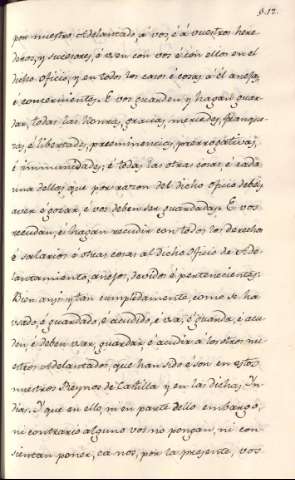 f. 12.
por nuestro Adelantado, á vos, é á vuestros here
deros, y sucesores, é usen con vos é con ellos en el
dicho oficio, y en todos los casos é cosas á él anejas,
e concernientes. E vos guarden y hagan guar
dar, todas las honras, gracias, mercedes, franque
zas, é libertades, preeminencias, prerrogativas,
é inmunidades; é todas las otras cosas é cada
una dellas, que por razon del dicho oficio debeis
aver é gozar, é vos deben ser guardadas. E vos
recudan, é hagan recudir con todos los derechos
é salarios é otras cosas al dicho Oficio de Ade
lantamiento, añejos, devidos é pertenecientes.
Bien ansi y tan cumplidamente, como se ha
usado, é guardado, é acudido, é usa, é guarda, é acu
den é deben usar, guardar é acudir á los otros nu
estros Adelantados, que han sido é son en estos
nuestros Reynos de Castilla y en las dichas Yn
dias. Y que en ello, ni en parte dello embargo,
ni contrario alguno vos no pongan, ni con
sientan poner, ca nos, por la presente, vos